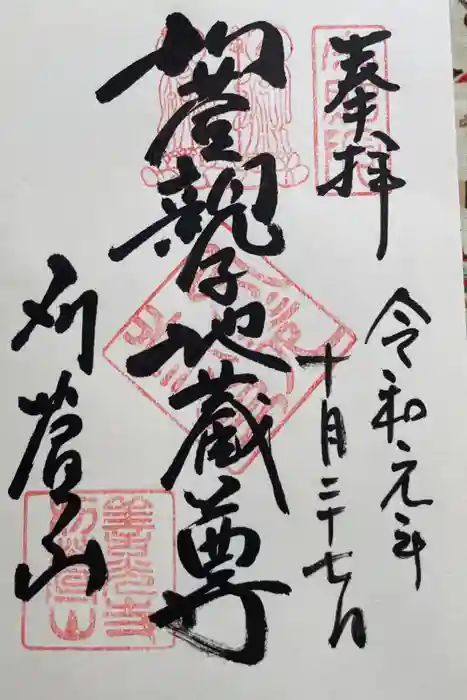 奉拝
令和元年
十月二十七日
刈萱親子地蔵尊
刈萱山